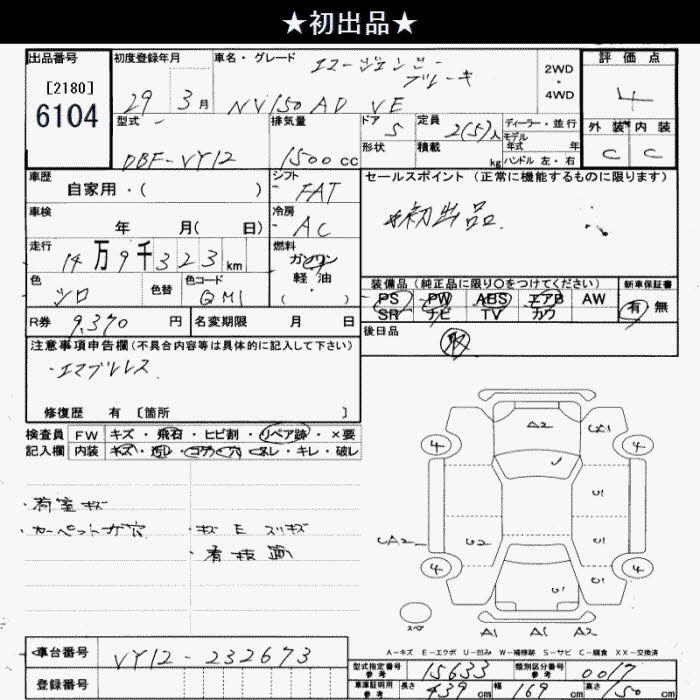 ★初出品★
出品番号 初度登録年月 車名・グレード エマージェンシーブレーキ 2WD・4WD 評価点
[2180]
6104
29年 3月 NV150 AD VE 4
型式 排気量 ドア 5 定員 2(5)人 ディーラー・並行 外装 内装
モデル年式 年
形状 積載 kg ハンドル 左・右 C C
DBF-VY12 1500cc
車歴 シフト FAT セールスポイント (正常に機能するものに限ります)
自家用・( )
車検 冷房 AC ★初出品
年 月( 日)
走行 燃料
14万9千323km ガソリン
軽・油
( ・ )
色 色替 色コード 装備品 (純正品に限り〇をつけてください) 新車保証書
シロ QM1 PS PW ABS エアB AW 有 無
SR ナビ TV カワ
R券 9,370円 名変期限 月 日 後日品 取
注意事項申告欄(不具合内容等は具体的に記入して下さい)
・エマブレレス
修復歴 有 [箇所 ]
検査員 FW キズ・飛石・ヒビ割・リペア跡・×要
記入欄 内装 キズ・汚レ・コゲ・穴・スレ・キレ・破レ
A2 CA1
4 4
U1
CA2 U2 U1
4 4
U1 U1
スペ A1 A1 A2
・荷室キズ
・カーペット ガ穴 ・キズ E スリキズ
・看板跡
A-キズ E-エクボ U-凹み W-補修跡 S-サビ C-腐食 XX-交換済
車台番号 VY12-232673
型式指定番号 参考 15633 類別区分番号 参考 0017
登録番号
車庫証明用 参考 長さ 439cm 幅 169cm 高さ 150cm